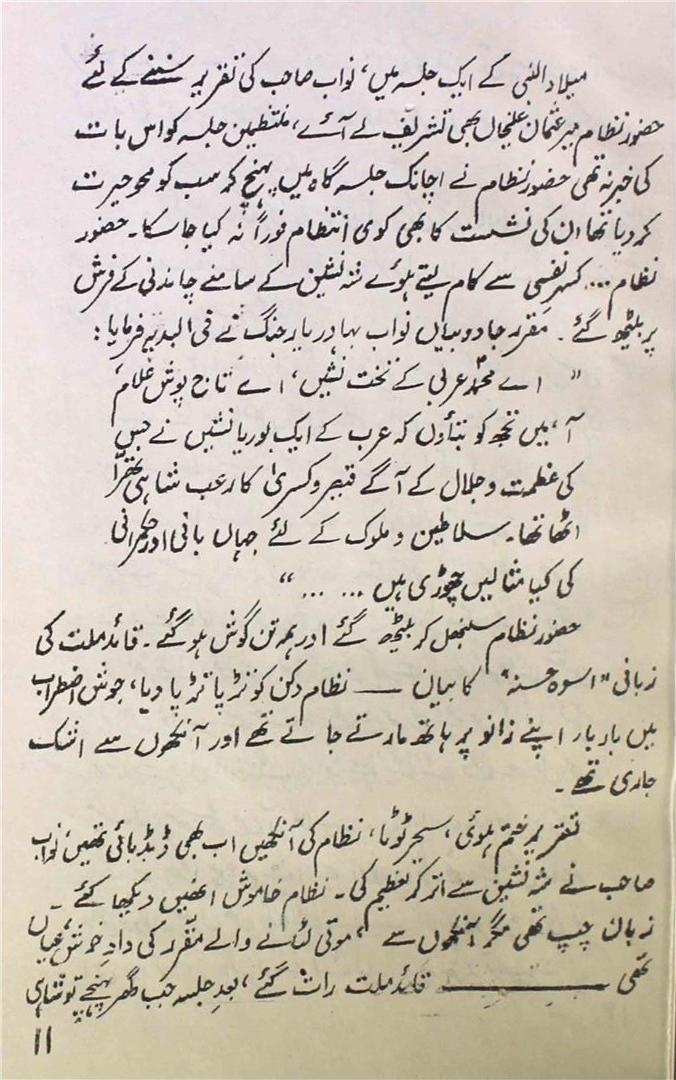 میلاد النبی کے ایک جلسہ میں، نواب صاحب کی تقریر سننے کے لئے
حضور نظام میر عثمان علیخاں بھی تشریف لے آئے، منتظمین جلسہ کو اس بات
کی خبر نہ تھی حضور نظام نے اچانک جلسہ گاہ میں پہنچ کر سب کو محو حیرت
کر دیا تھا ان کی نشست کا بھی کوی انتظام فوراً نہ کیا جا سکا۔ حضور
نظام ... کسر نفسی سے کام لیتے ہوئے شہ نشین کے سامنے چاندنی کے فرش
پر بیٹھ گئے۔ مقرر جادو بیاں نواب بہادر یار جنگ نے فی البدیہہ فرمایا :
" اے محمدؐ عربی کے تخت نشیں، اے تاج پوش غلام
آ، میں تجھ کو بتاؤں کہ عرب کے ایک بوریا نشیں نے جس
کی عظمت و جلال کے آگے قیصر و کسریٰ کا رعب شاہی تھرّا
اٹھا تھا۔ سلاطین و ملوک کے لئے جہاں بانی اور حکمرانی
کی کیا مثالیں چھوڑی ہیں ... ... "
حضور نظام سنبھل کر بیٹھ گئے اور ہمہ تن گوش ہو گئے۔ قائد ملت کی
زبانی "اسوہ حسنہ" کا بیان — نظام دکن کو تڑپا تڑپا دیا، جوش اضطراب
میں بار بار اپنے زانو پر ہاتھ مارتے جاتے تھے اور آنکھوں سے اشک
جاری تھے۔
تقریر ختم ہوئی، سحر ٹوٹا، نظام کی آنکھیں اب بھی ڈبڈبائی تھیں، نواب
صاحب نے شہ نشین سے اتر کر تعظیم کی۔ نظام خاموش انھیں دیکھا کئے۔
زبان چپ تھی مگر آنکھوں سے، موتی لٹانے والے مقّرر کی داد خوش عیاں
تھی — قائد ملت رات گئے، بعد جلسہ جب گھر پہنچے تو شاہی
11